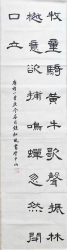 牧童騎黃牛歌聲振林
樾意欲捕鳴蟬忽然閉
口立